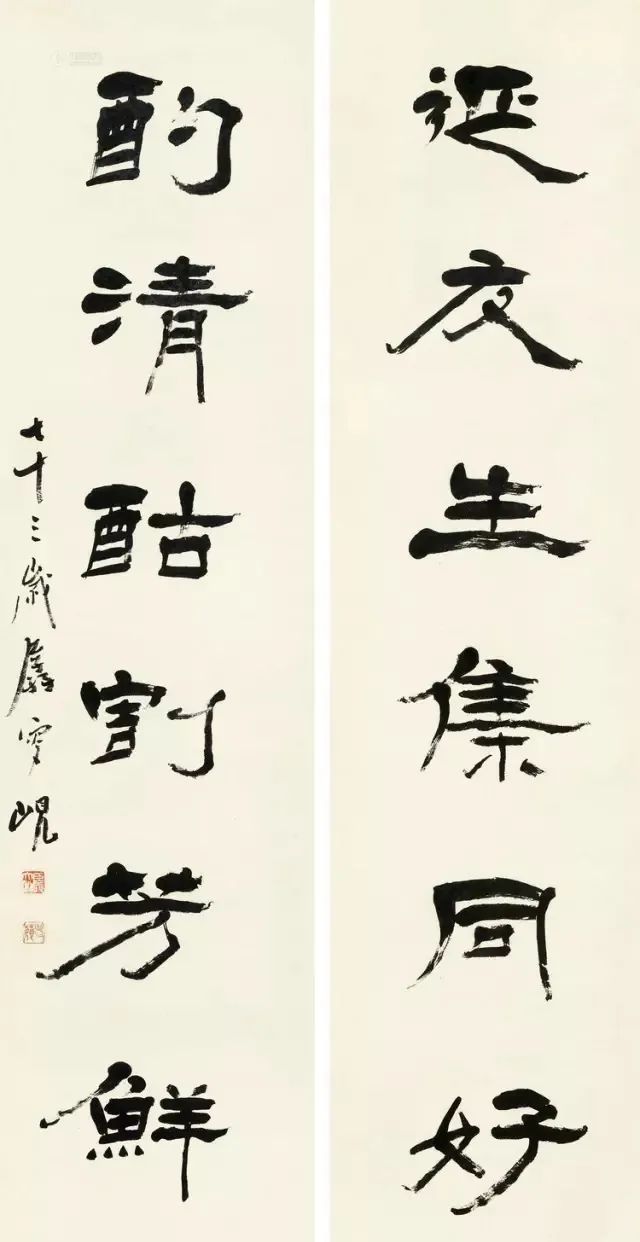 延友生集同好
酌清酤割芳鮮
七十三歲峴